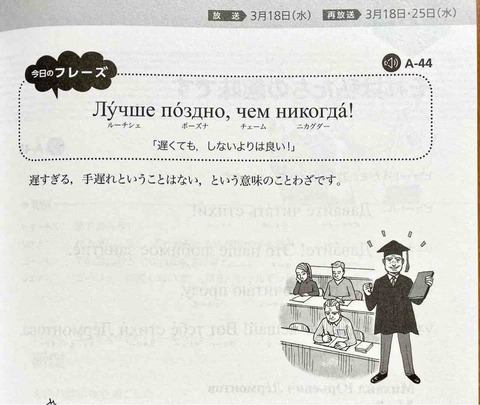 放送 3月18日(水) 再放送 3月18日・25日(水)
A-44
今日のフレーズ
Лу́чше по́здно, чем никогда́!
ルーチシェ ポーズナ チェーム ニカグダー
「遅くても，しないよりは良い！」
遅すぎる，手遅れということはない，という意味のことわざです。